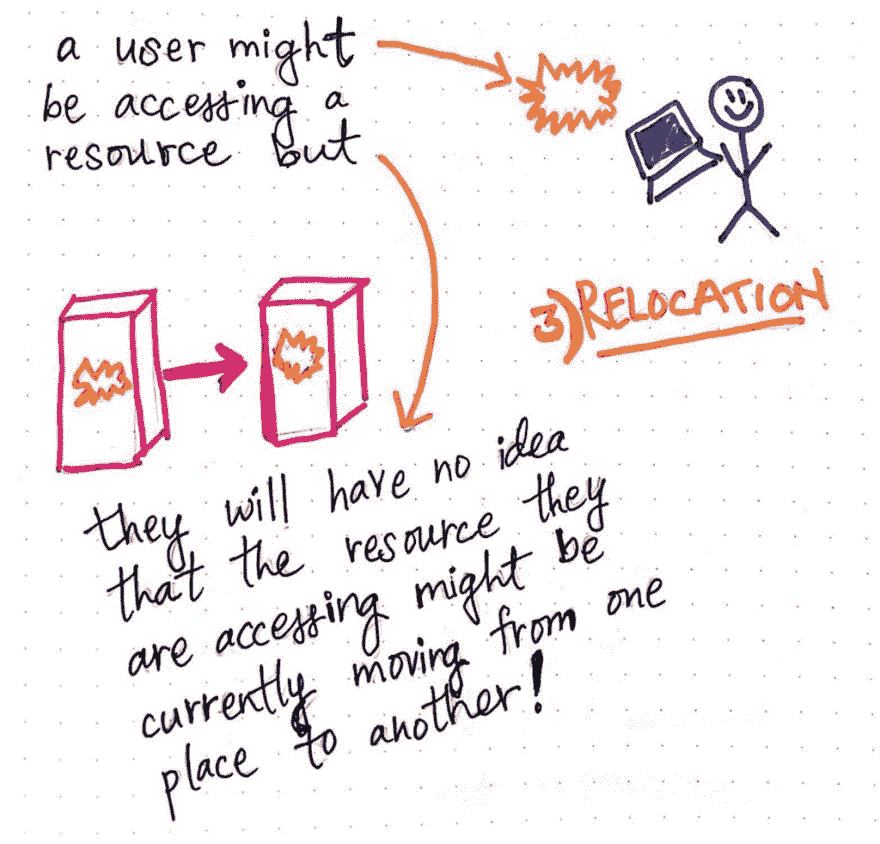 a user might
be accessing a
resource but
3) RELOCATION
they will have no idea
that the resource they
are accessing might be
currently moving from one
place to another!